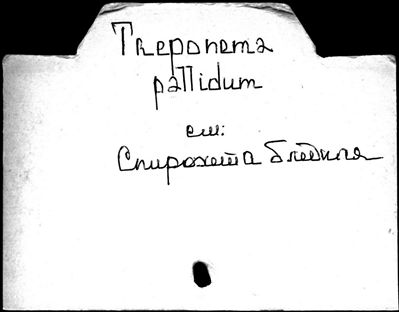 Treponema
pallidum
см:
Спирохета бледная